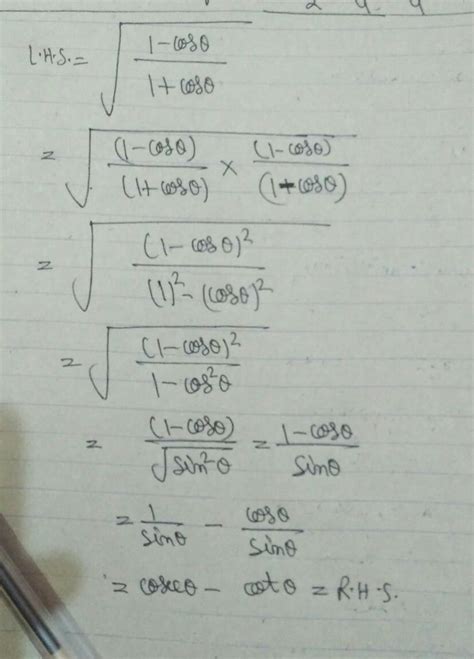 L.H.S. = √((1-cosθ)/(1+cosθ))
= √((1-cosθ)/(1+cosθ) × (1-cosθ)/(1-cosθ))
= √((1-cosθ)²/((1)²-(cosθ)²))
= √((1-cosθ)²/(1-cos²θ))
= (1-cosθ)/√(sin²θ) = (1-cosθ)/sinθ
= 1/sinθ - cosθ/sinθ
= cosecθ - cotθ = R.H.S.